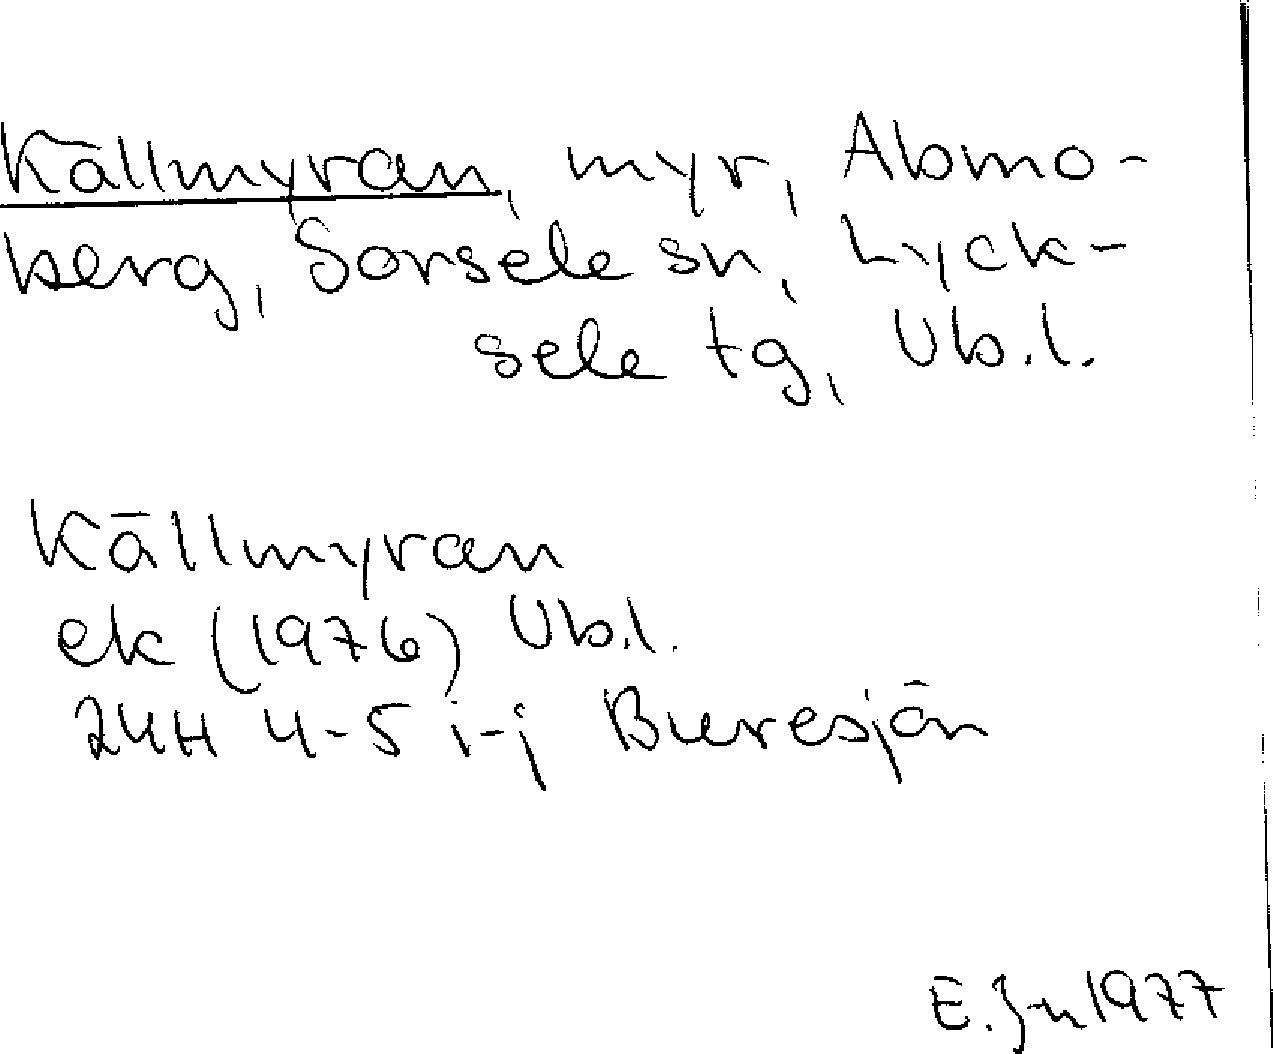 Källmyran, myr, Abmo-
berg, Sorsele sn, Lyck-
sele tg, Vb.l.
Källmyran
ek (1976) Vb.l.
24H 4-5 i-j Buresjön
E. Jn 1977